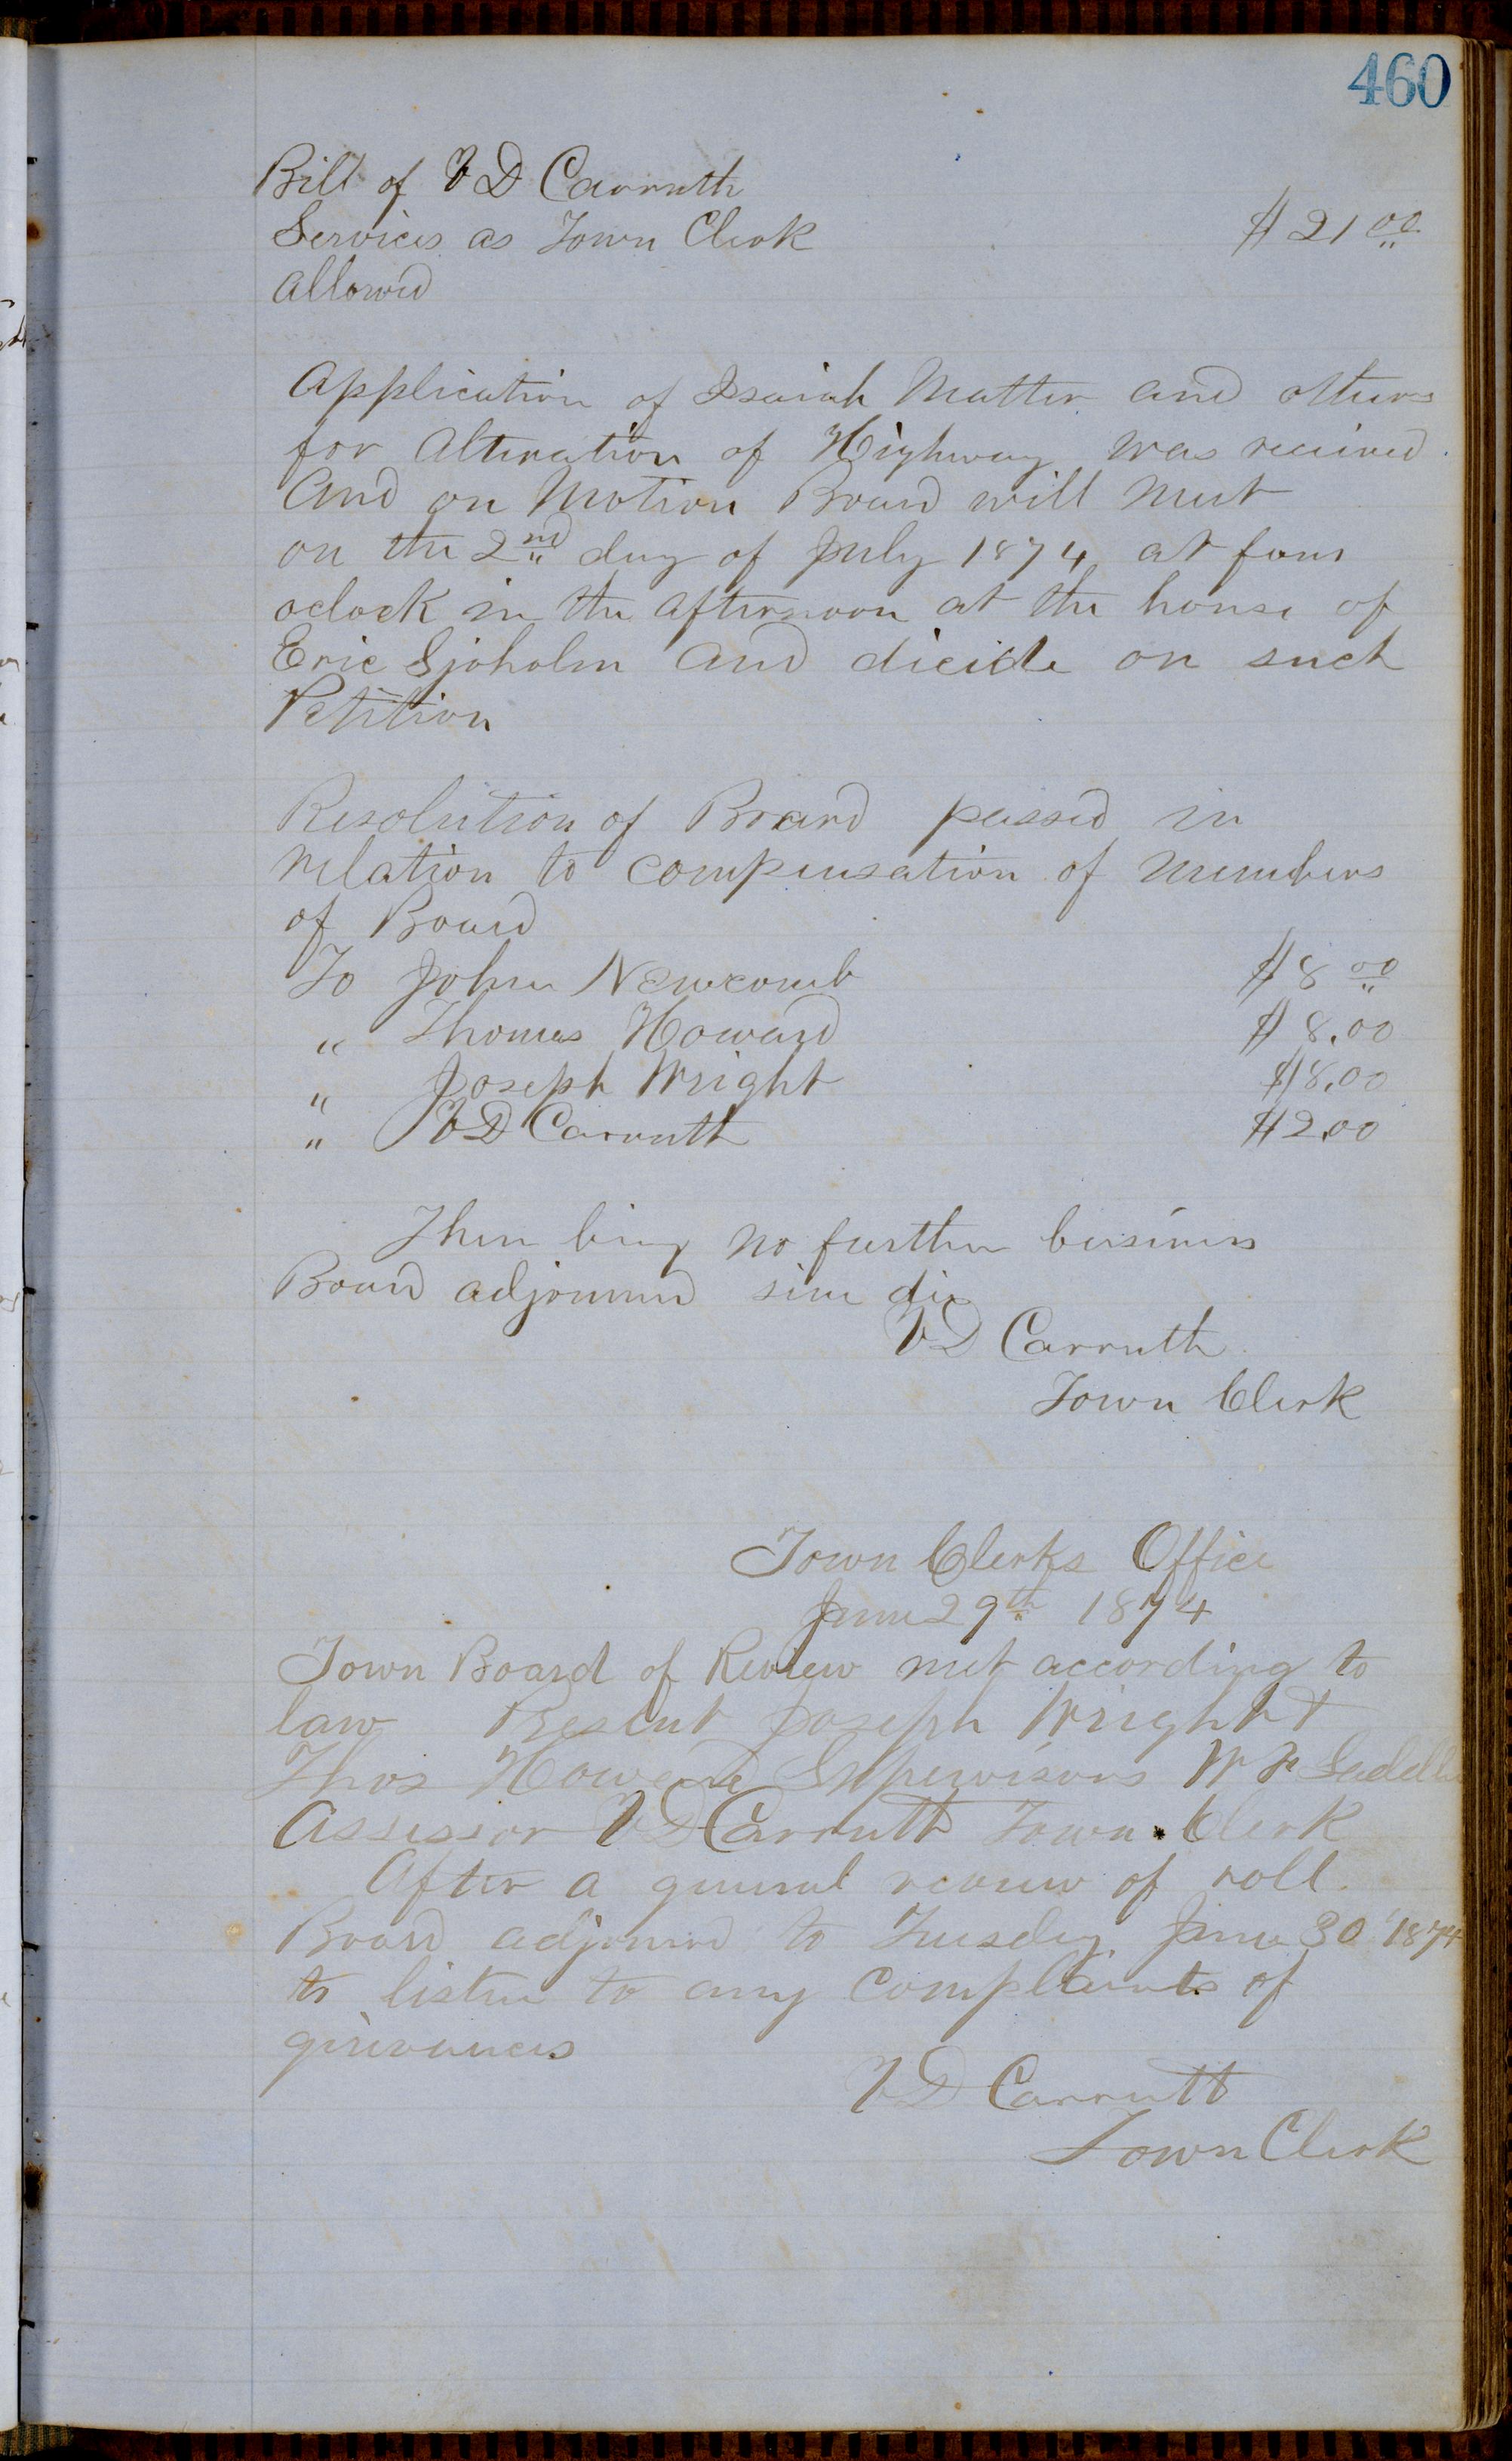 460
Bill of V D Carruth
Services as Town Clerk $21 00
Allowed
Application of Isaiah Matter and others
for Alteration of Highway was received.
And on Motion Board will meet
on the 2nd day of July 1874 at four
oclock in the afternoon at the house of
Eric Sjoholm and dicide on such
Petition
Resolution of Board passed in
relation to compensation of members
of Board
To John Newcomb $8 00
" Thomas Howard $8.00
" Joseph Wright $8.00
" V D Carruth $2.00
There being no further business
Board adjourned sine die
V D Carruth
Town Clerk
Town Clerks Office
June 29th 1874
Town Board of Review met according to
law Present Joseph Wright &
Thos Howard Supervisors W F
Assessor V D Carruth Town Clerk
After a general review of roll.
Board adjourned to Tuesday June 30 1874
to listen to any complaints of
grievances
V D Carruth
Town Clerk